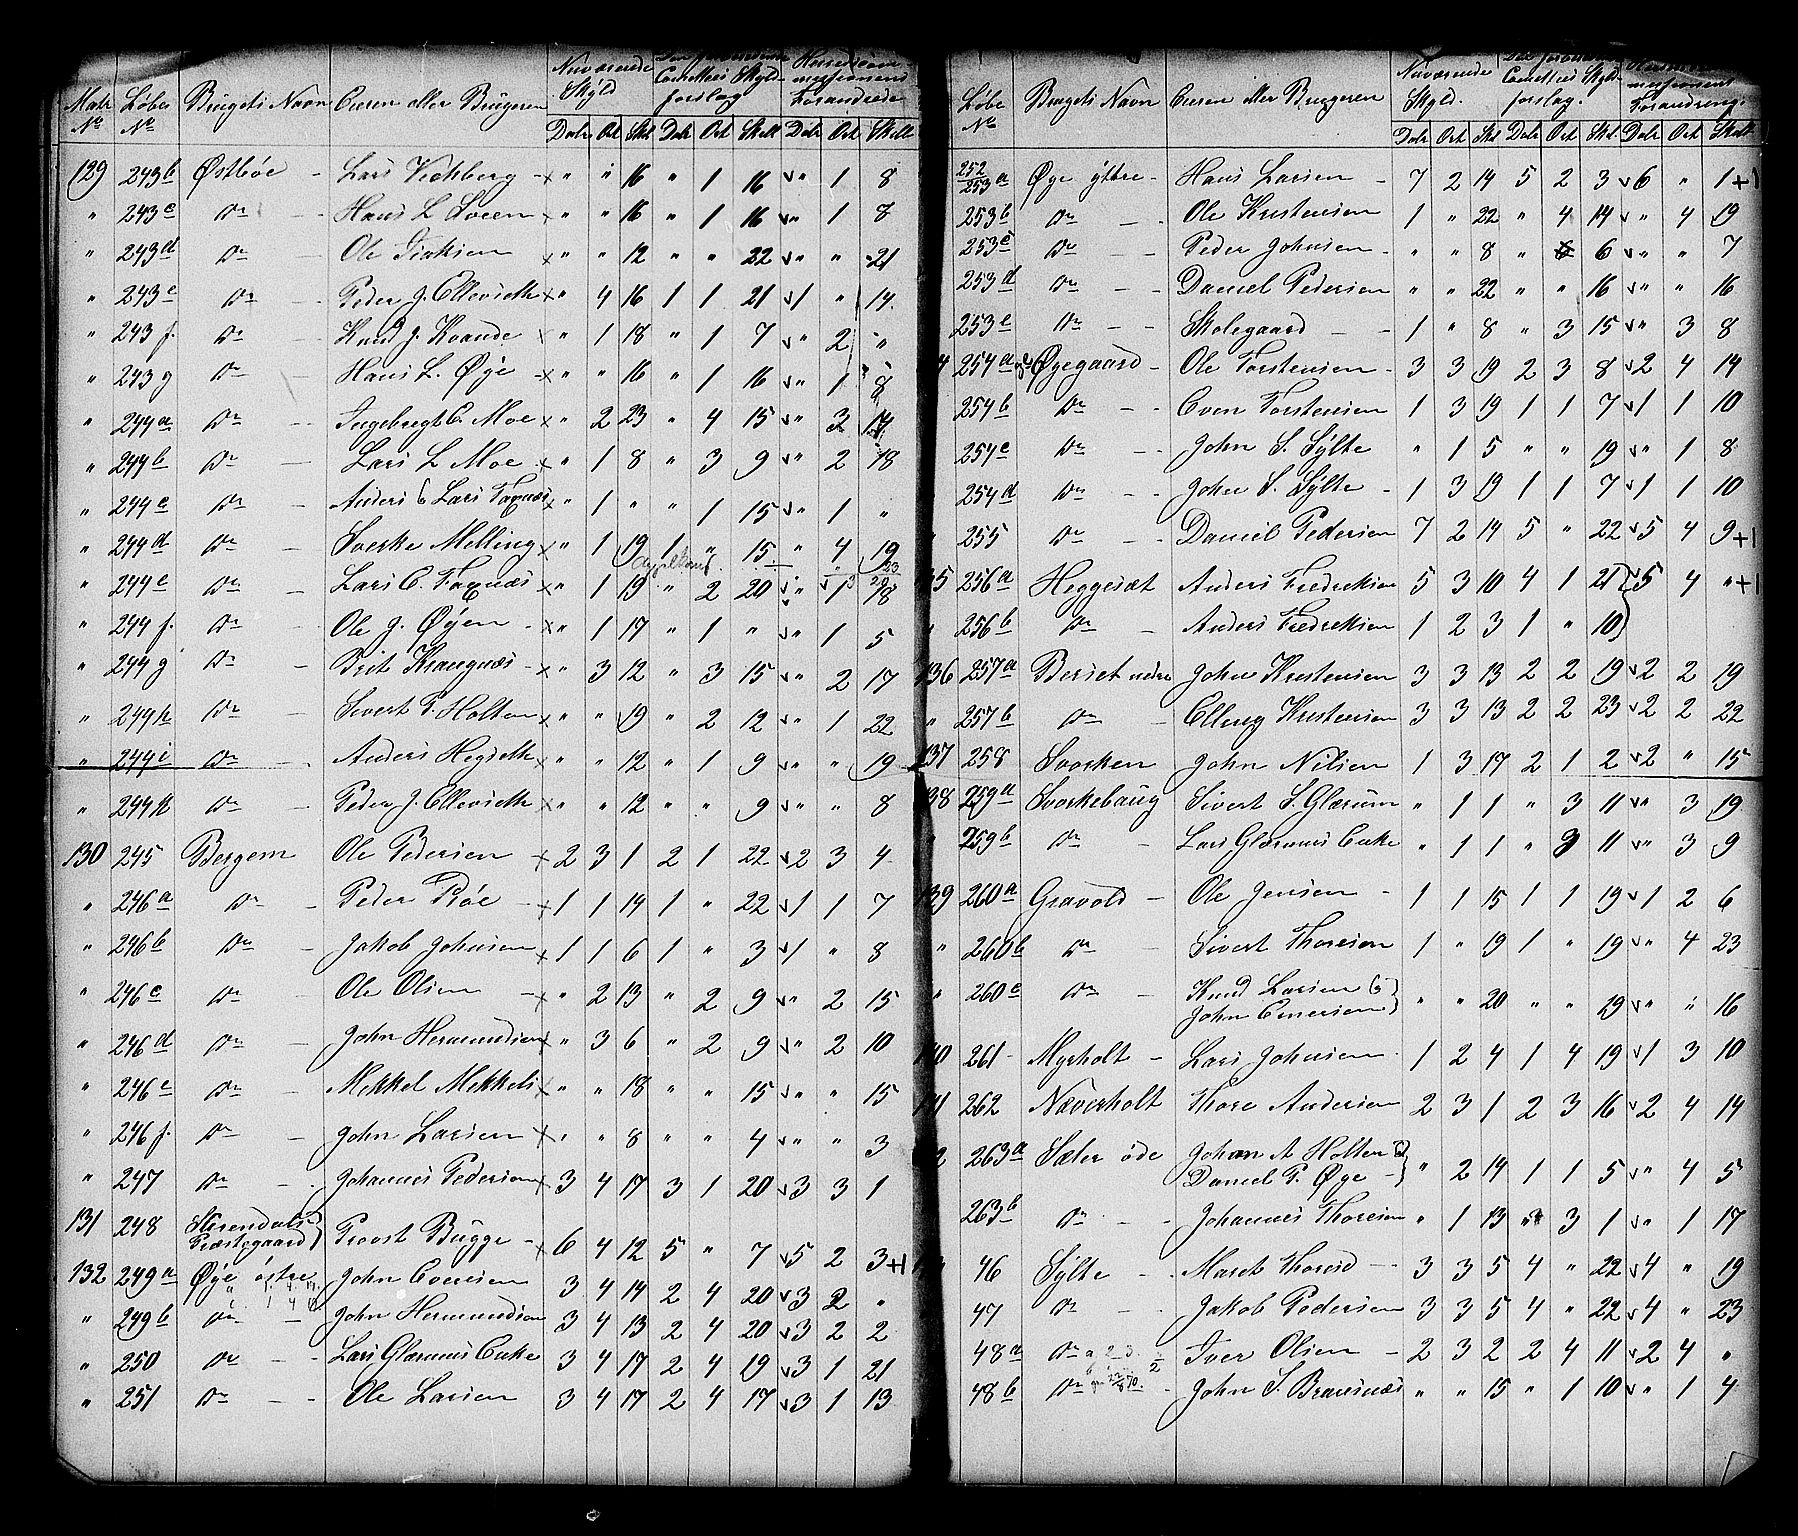 Matr Løbe Brugets Navn Eieren eller Brugeren Nuværende Skyld Comittees Skyld forslag Herredscom missionens Forandrede
No No Dalr Ort Skil Dalr Ort Skill Dalr Ort Skill
129 243b Østbøe - Lars Vichberg - x " " 16 " 1 16 v " 1 8
" 243c Do - Hans L Sveen x " " 16 " 1 16 v " 1 8
" 243d Do - Ole x " " 12 " " 22 v " " 21
" 243e Do - Peder J. Ellevseth x " 4 16 1 1 21 v 1 " 14
" 243f. Do - Knud J. Kvande x " 1 18 " 1 7 v " 2 "
" 243g Do - Hans L. Øye - x " " 16 " 1 16 v " 1 8
" 244a Do - Ingebregt E. Moe x " 2 23 " 4 15 v " 3 14
" 244b Do - Lars L Moe - x " 1 8 " 3 9 v " 2 18
" 244c Do - Anders & Lars x " 1 " " 1 15 v " 1 "
" 244d Do - Sverke Melling x " 1 19 1 " 15 " 4 19
" 244e Do - Lars E. x " 1 19 " 2 20 v " 1 18
" 244f. Do - Ole J. Øyen - x " 1 17 " 1 " v " 1 5
" 244g Do - Brit Krangnæs - x " 3 12 " 3 15 v " 2 17
" 244h Do - Sivert P. Holten x " " 19 " 2 12 v " 1 22
" 244i Do - Anders Hegseth x " " 12 " 1 9 v " " 19
" 244k Do - Peder J. Ellevseth x " " 12 " " 9 v " " 8
130 245 Bergem Ole Pedersen - x 2 3 1 2 1 22 v 2 3 4
" 246a Do - Peder Røe - x 1 1 14 1 " 22 v 1 1 7
" 246b Do - Jakob Johnsen x 1 1 6 1 " 3 v 1 " 8
" 246c Do - Ole Olsen - x " 2 13 " 2 9 v " 2 15
" 246d Do - John Hermundsen x " 3 6 " 2 9 v " 2 10
" 246e Do - Mekkel Mekkels x " " 18 " " 15 v " " 15
" 246f. Do - John Larsen - x " " 8 " " 4 v " " 3
" 247 Do - Johannes Pedersen x 3 4 17 3 1 20 v 3 3 1
131 248 Surendals Præstegaard} Provst Bugge - x 6 4 12 5 " 7 v 5 2 3+1
132 249a Øye østre John Evensen 3 4 14 2 4 20 v 3 2 "
" 249b Do - John Hermundsen 3 4 13 2 4 20 v 3 2 2
" 250 Do - Lars Glærums Enke 3 4 17 2 4 19 v 3 1 21
" 251 Do - Ole Larsen 3 4 17 2 4 17 v 3 1 13
Løbe Brugets Navn Eieren eller Brugeren Nuværende Skyld. Comittees Skyld forslag. missionens Forandring.
No Dalr Ort Skil Dalr Ort Skil Dalr Ort Skill
252/253a Øye yttre - Hans Larsen - 7 2 14 5 2 3 v 6 " 1+1
253b Do - Ole Kristensen 1 " 22 " 4 14 v " 4 19
253c Do - Peder Johnsen - " " 8 " 6 v " " 7
253d Do - Daniel Pedersen " " 22 " " 16 v " " 16
253e Do - Skolegaard - - 1 " 8 " 3 15 v " 3 8
4 254a Øyegaard - Ole Torstensen - 3 3 19 2 3 8 v 2 4 14
254b Do - Even Torstensen 1 3 19 1 1 7 v 1 1 10
254c Do - John S. Sylte " 1 5 " " 19 v " 1 8
254d Do - John S. Sylte - 1 3 19 1 1 7 v 1 1 10
255 Do - Daniel Pedersen 7 2 14 5 " 22 v 5 4 9+1
35 256a Heggesæt Anders Fredreksen 5 3 10 4 1 21} v 5 4 "+1
" 256b Do - Anders Fredreksen 1 2 3 1 " 10}
136 257a Berset nedre John Kristensen 3 3 13 2 2 19 v 2 2 19
" 257b Do - Elling Kristensen 3 3 13 2 2 23 v 2 2 22
137 258 Svorken John Nilsen 1 3 17 2 1 2 v 2 " 15
138 259a Svorkebaug Sivert S. Glærum " 1 1 " 3 11 v " 3 19
259b Do - Lars Glærums Enke " 1 1 " 3 11 v " 3 9
139 260a Gravold - Ole Jensen - 1 1 15 1 1 19 v 1 2 6
" 260b Do - Sivert Thoresen 1 " 19 1 " 19 v " 4 23
" 260c Do - Knud Larsen &
John Einersen} " " 20 " " 19 v " " 16
140 261 - Myrholt - Lars Johnsen 1 2 4 1 4 19 v 1 3 10
141 262 Næverholt Thore Andersen 2 3 1 2 3 16 v 2 4 14
2 263a Sæter øde Johan A Holten &
Daniel P. Øye -} " 2 14 1 1 5 v " 4 5
263b Do - Johannes Thoresen " 1 13 " 3 1 v " 1 17
46 Sylte - Maret Thoresd - 3 3 5 4 " 22 v 4 " 19
47 Do - Jakob Pedersen 3 3 5 4 " 22 v 4 " 23
48a Do Iver Olsen - 2 3 2 2 4 11 v 2 4 "
48b Do John S. Brausnæs " " 15 " 1 10 v " 1 4